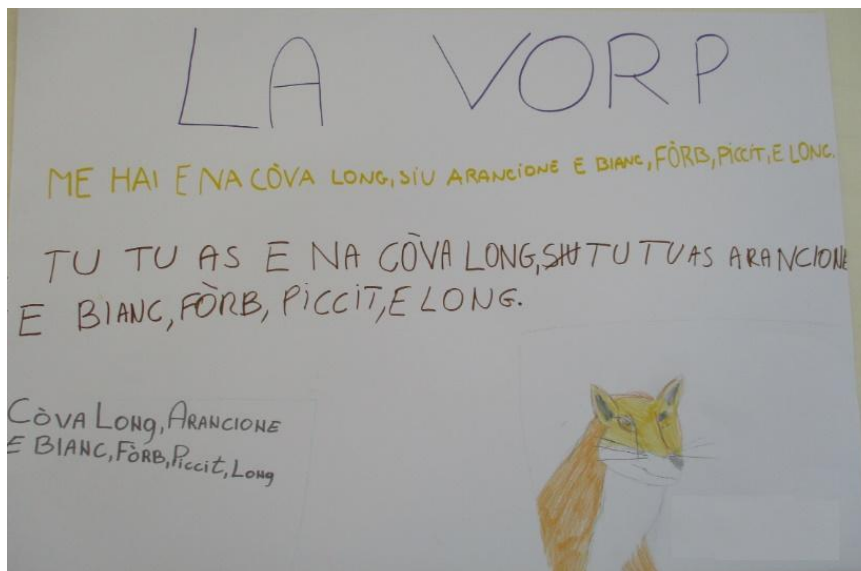 LA VORP
ME HAI E NA CÒVA LONG, SIU ARANCIONE E BIANC, FÒRB, PICCIT, E LONG.
TU TU AS E NA CÒVA LONG, SIU TU TU AS ARANCIONE
E BIANC, FÒRB, PICCIT, E LONG.
CÒVA LONG, ARANCIONE
E BIANC, FÒRB, PICCIT, LONG